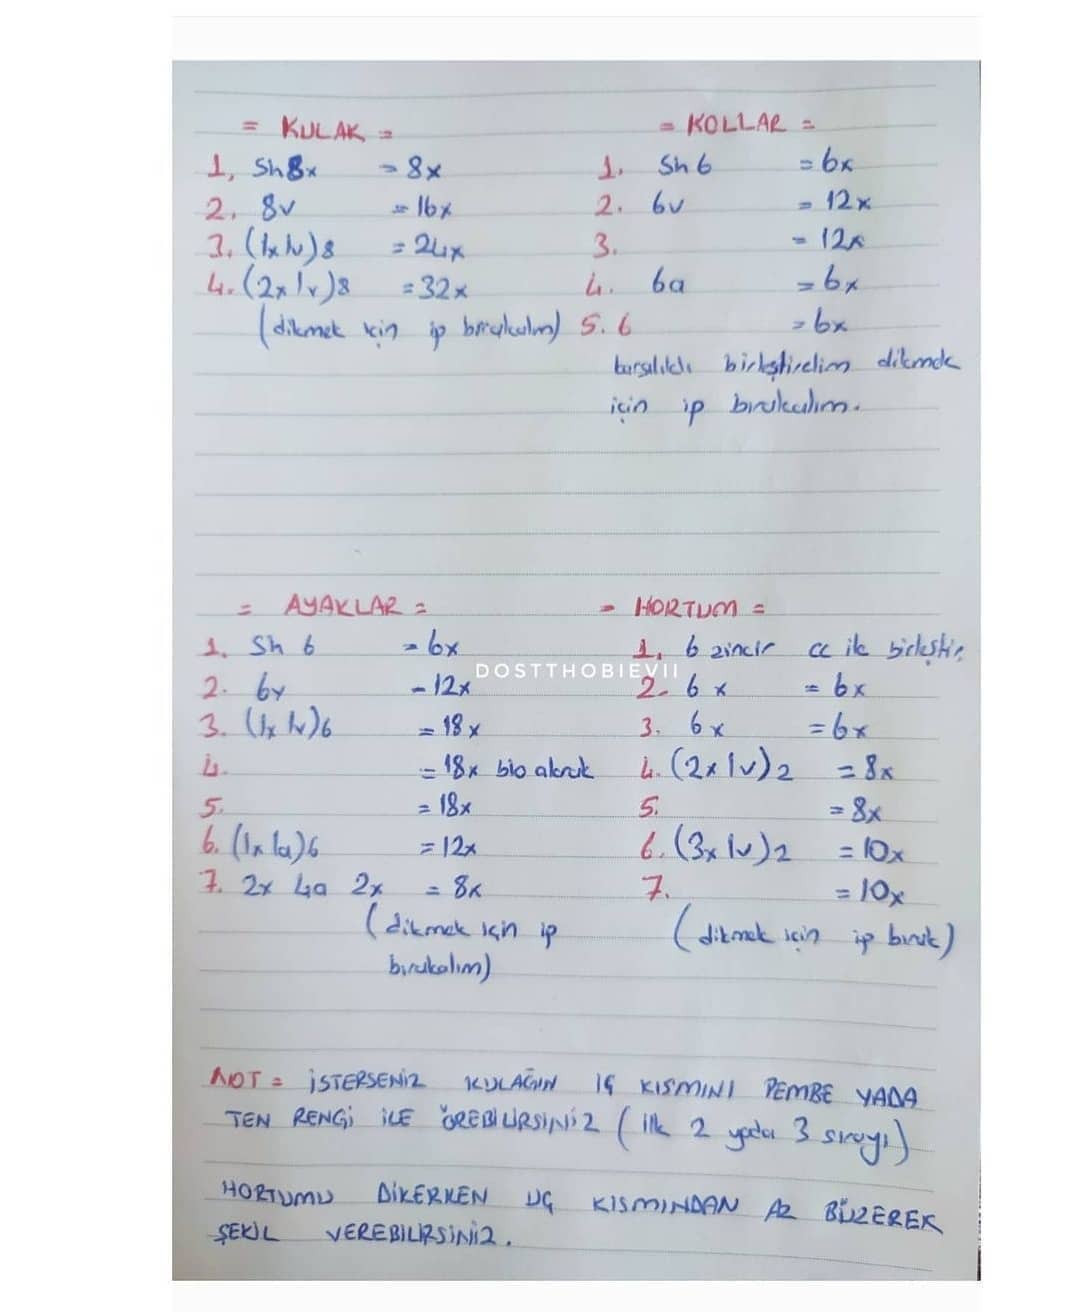 = KULAK =
1, Sh 8x = 8x
2, 8v = 16x
3. (1x 1v)8 = 24x
4. (2x 1v)8 = 32x
(dikmek için ip bırakalım)
= KOLLAR =
1. Sh 6 = 6x
2. 6v = 12x
3. = 12x
4. 6a = 6x
5. 6 = 6x
karşılıklı birleştirelim dikmek
için ip bırakalım.
= AYAKLAR =
1. Sh 6 = 6x
2. 6v = 12x
3. (1x 1v)6 = 18x
4. = 18x blo alarak
5. = 18x
6. (1x 1a)6 = 12x
7. 2x 4a 2x = 8x
(dikmek için ip
bırakalım)
= HORTUM =
1. 6 zincir cc ile birleştir.
2. 6x = 6x
3. 6x = 6x
4. (2x 1v)2 = 8x
5. = 8x
6. (3x 1v)2 = 10x
7. = 10x
(dikmek için ip bırak)
DOSTTHOBIEVII
NOT = İSTERSENİZ KULAĞIN İÇ KISMINI PEMBE YADA
TEN RENGİ İLE ÖREBİLİRSİNİZ (ilk 2 yada 3 sırayı)
HORTUMU DİKERKEN UÇ KISMINDAN AZ BÜZEREK
ŞEKİL VEREBİLİRSİNİZ.